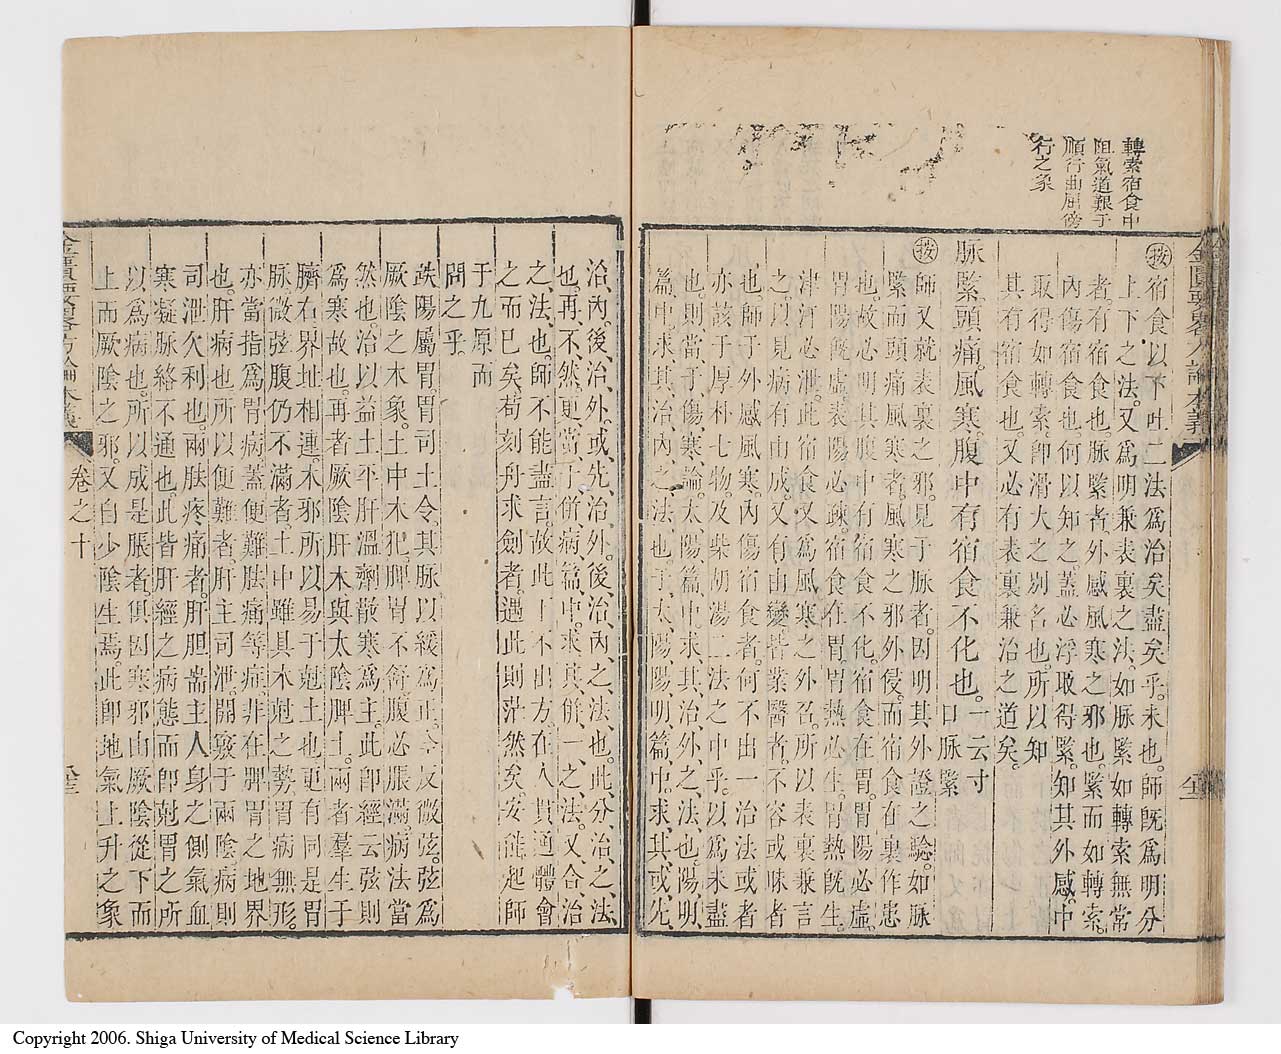 轉索宿食中
阻氣道艱于
順行曲屈傍
行之象
金匱要畧方論本義
㊡宿食以下吐二法爲治矣盡矣乎。未也。師旣爲明分
上下之法。又爲明兼表裏之法。如脉緊如轉索無常
者。有宿食也。脉緊者。外感風寒之邪也。緊而如轉索。
內傷宿食也。何以知之。蓋必浮取得緊。知其外感。中
取得如轉索。卽滑大之別名也。所以知
其有宿食也。又必有表裏兼治之道矣。
脉緊頭痛風寒腹中有宿食不化也。一云寸
口脉緊
㊡師又就表裏之邪。見于脉者。因明其外證之驗。如脉
緊而頭痛風寒者。風寒之邪外侵。而宿食在裏作患
也。故必明其腹中有宿食不化。宿食在胃。胃陽必虛。
胃陽旣虛。表陽必疎。宿食在胃。胃熱必生。胃熱旣生。
津汗必泄。此宿食又爲風寒之外召。所以表裏兼言
之。以見病有由成。又有由變。皆業醫者。不容或昧者
也。師于外感風寒。內傷宿食者。何不出一治法。或者
亦該于厚朴七物。及柴胡湯二法之中乎。以爲未盡
也。則當于傷寒論太陽篇中求其治外之法也。陽明
篇中。求其治內之法也。于太陽陽明篇中。求其或先
治內。後治外。或先治外。後治內之法也。此分治之法
也。再不然。更當于併病篇中。求其併一之法。又合治
之法也。師不能盡言。故此上不出方。在人貫通體會
之而已矣。苟刻舟求劍者。遇此則茫然矣。安能起師
于九原而
問之乎。
趺陽屬胃。胃司土令。其脉以緩爲正。今反微弦。弦爲
厥陰之木象。土中木犯。脾胃不舒。腹必脹滿。病法當
然也。治以益土平肝溫劑散寒爲主。此卽經云弦則
爲寒故也。再者厥陰肝木與太陰脾土。兩者羣生于
臍右。界址相連。木邪所以易于尅土也。更有同是胃
脉微弦。腹仍不滿者。土中雖具木尅之勢。胃病無形。
亦當指爲胃病。蓋便難胠痛等症。非在脾胃之地界
也。肝病也。所以便難者。肝主司泄。開竅于兩陰。病則
司泄欠利也。兩胠疼痛者。肝胆耑主人身之側。氣血
寒凝。脉絡不通也。此皆肝經之病態。而卽尅胃之所
以爲病也。所以成是脹者。俱因寒邪由厥陰從下而
上。而厥陰之邪。又自少陰生焉。此卽地氣上升之象
卷之十